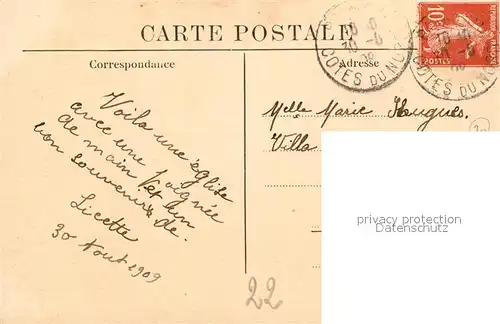 CARTE POSTALE
Correspondance
Adresse
10c
POSTES
COTES DU NORD
COTES DU NORD
Voila une église
avec une poignée
de main et un
bon souvenir de
Licette
30 Aout 1909
Melle Marie Hugues.
Villa
privacy protection
Datenschutz
22